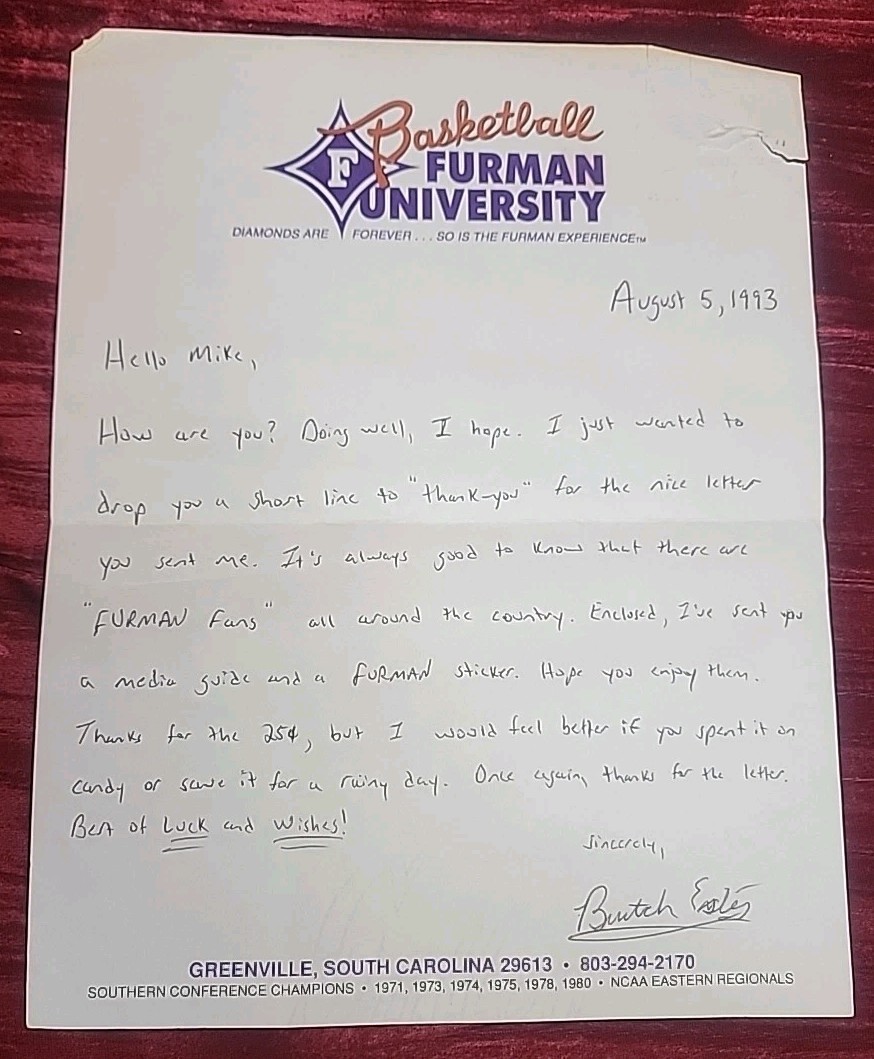 Basketball
F FURMAN
UNIVERSITY
DIAMONDS ARE FOREVER . . . SO IS THE FURMAN EXPERIENCE™
August 5, 1993
Hello Mike,
How are you? Doing well, I hope. I just wanted to
drop you a short line to "thank-you" for the nice letter
you sent me. It's always good to know that there are
"FURMAN Fans" all around the country. Enclosed, I've sent you
a media guide and a FURMAN sticker. Hope you enjoy them.
Thanks for the 25¢, but I would feel better if you spent it on
candy or save it for a rainy day. Once again, thanks for the letter.
Best of Luck and Wishes!
Sincerely,
Butch Estes
GREENVILLE, SOUTH CAROLINA 29613 • 803-294-2170
SOUTHERN CONFERENCE CHAMPIONS • 1971, 1973, 1974, 1975, 1978, 1980 • NCAA EASTERN REGIONALS